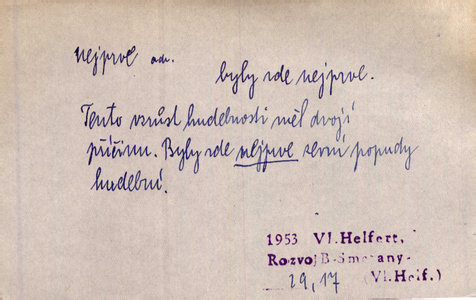 nejprve adv.
byly zde nejprve.
Tento vzrůst hudebnosti měl dvojí
příčinu. Byly zde nejprve popudy
hudební.
1953 Vl. Helfert,
Rozvoj B. Smetany-
29,17 (Vl. Helf.)